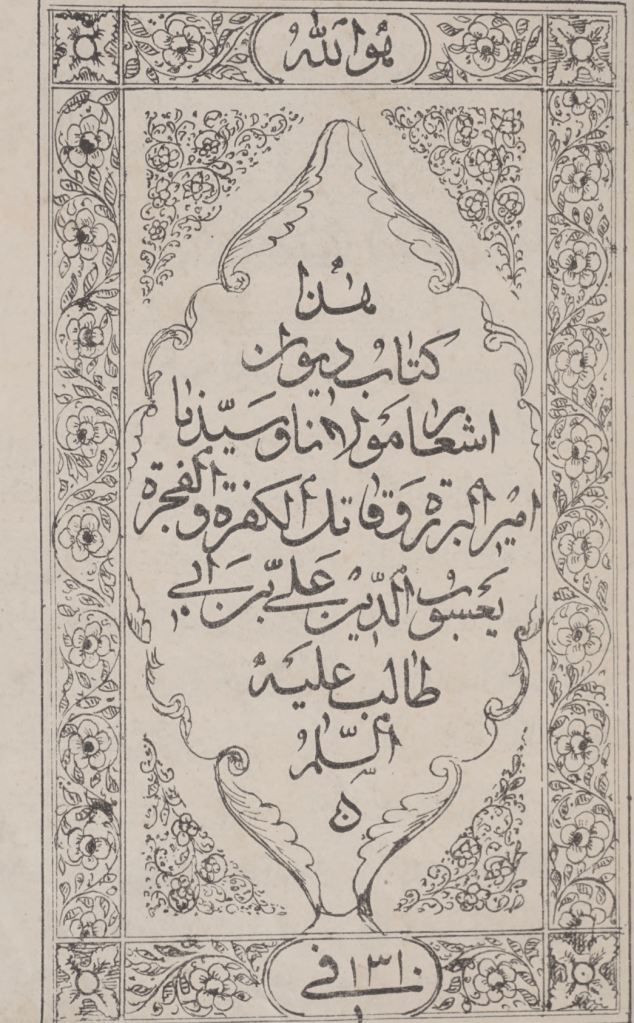 هُوَ اللّٰه
هٰذا
كتاب ديوان
اشعار مَولانا وَ سَيّدنا
امير البررة وَ قاتل الكفرة و الفجرة
يَعسُوبُ الدّين عَلىّ بن اَبى
طالب عليه
السّلٰم
فى ١٣١٠